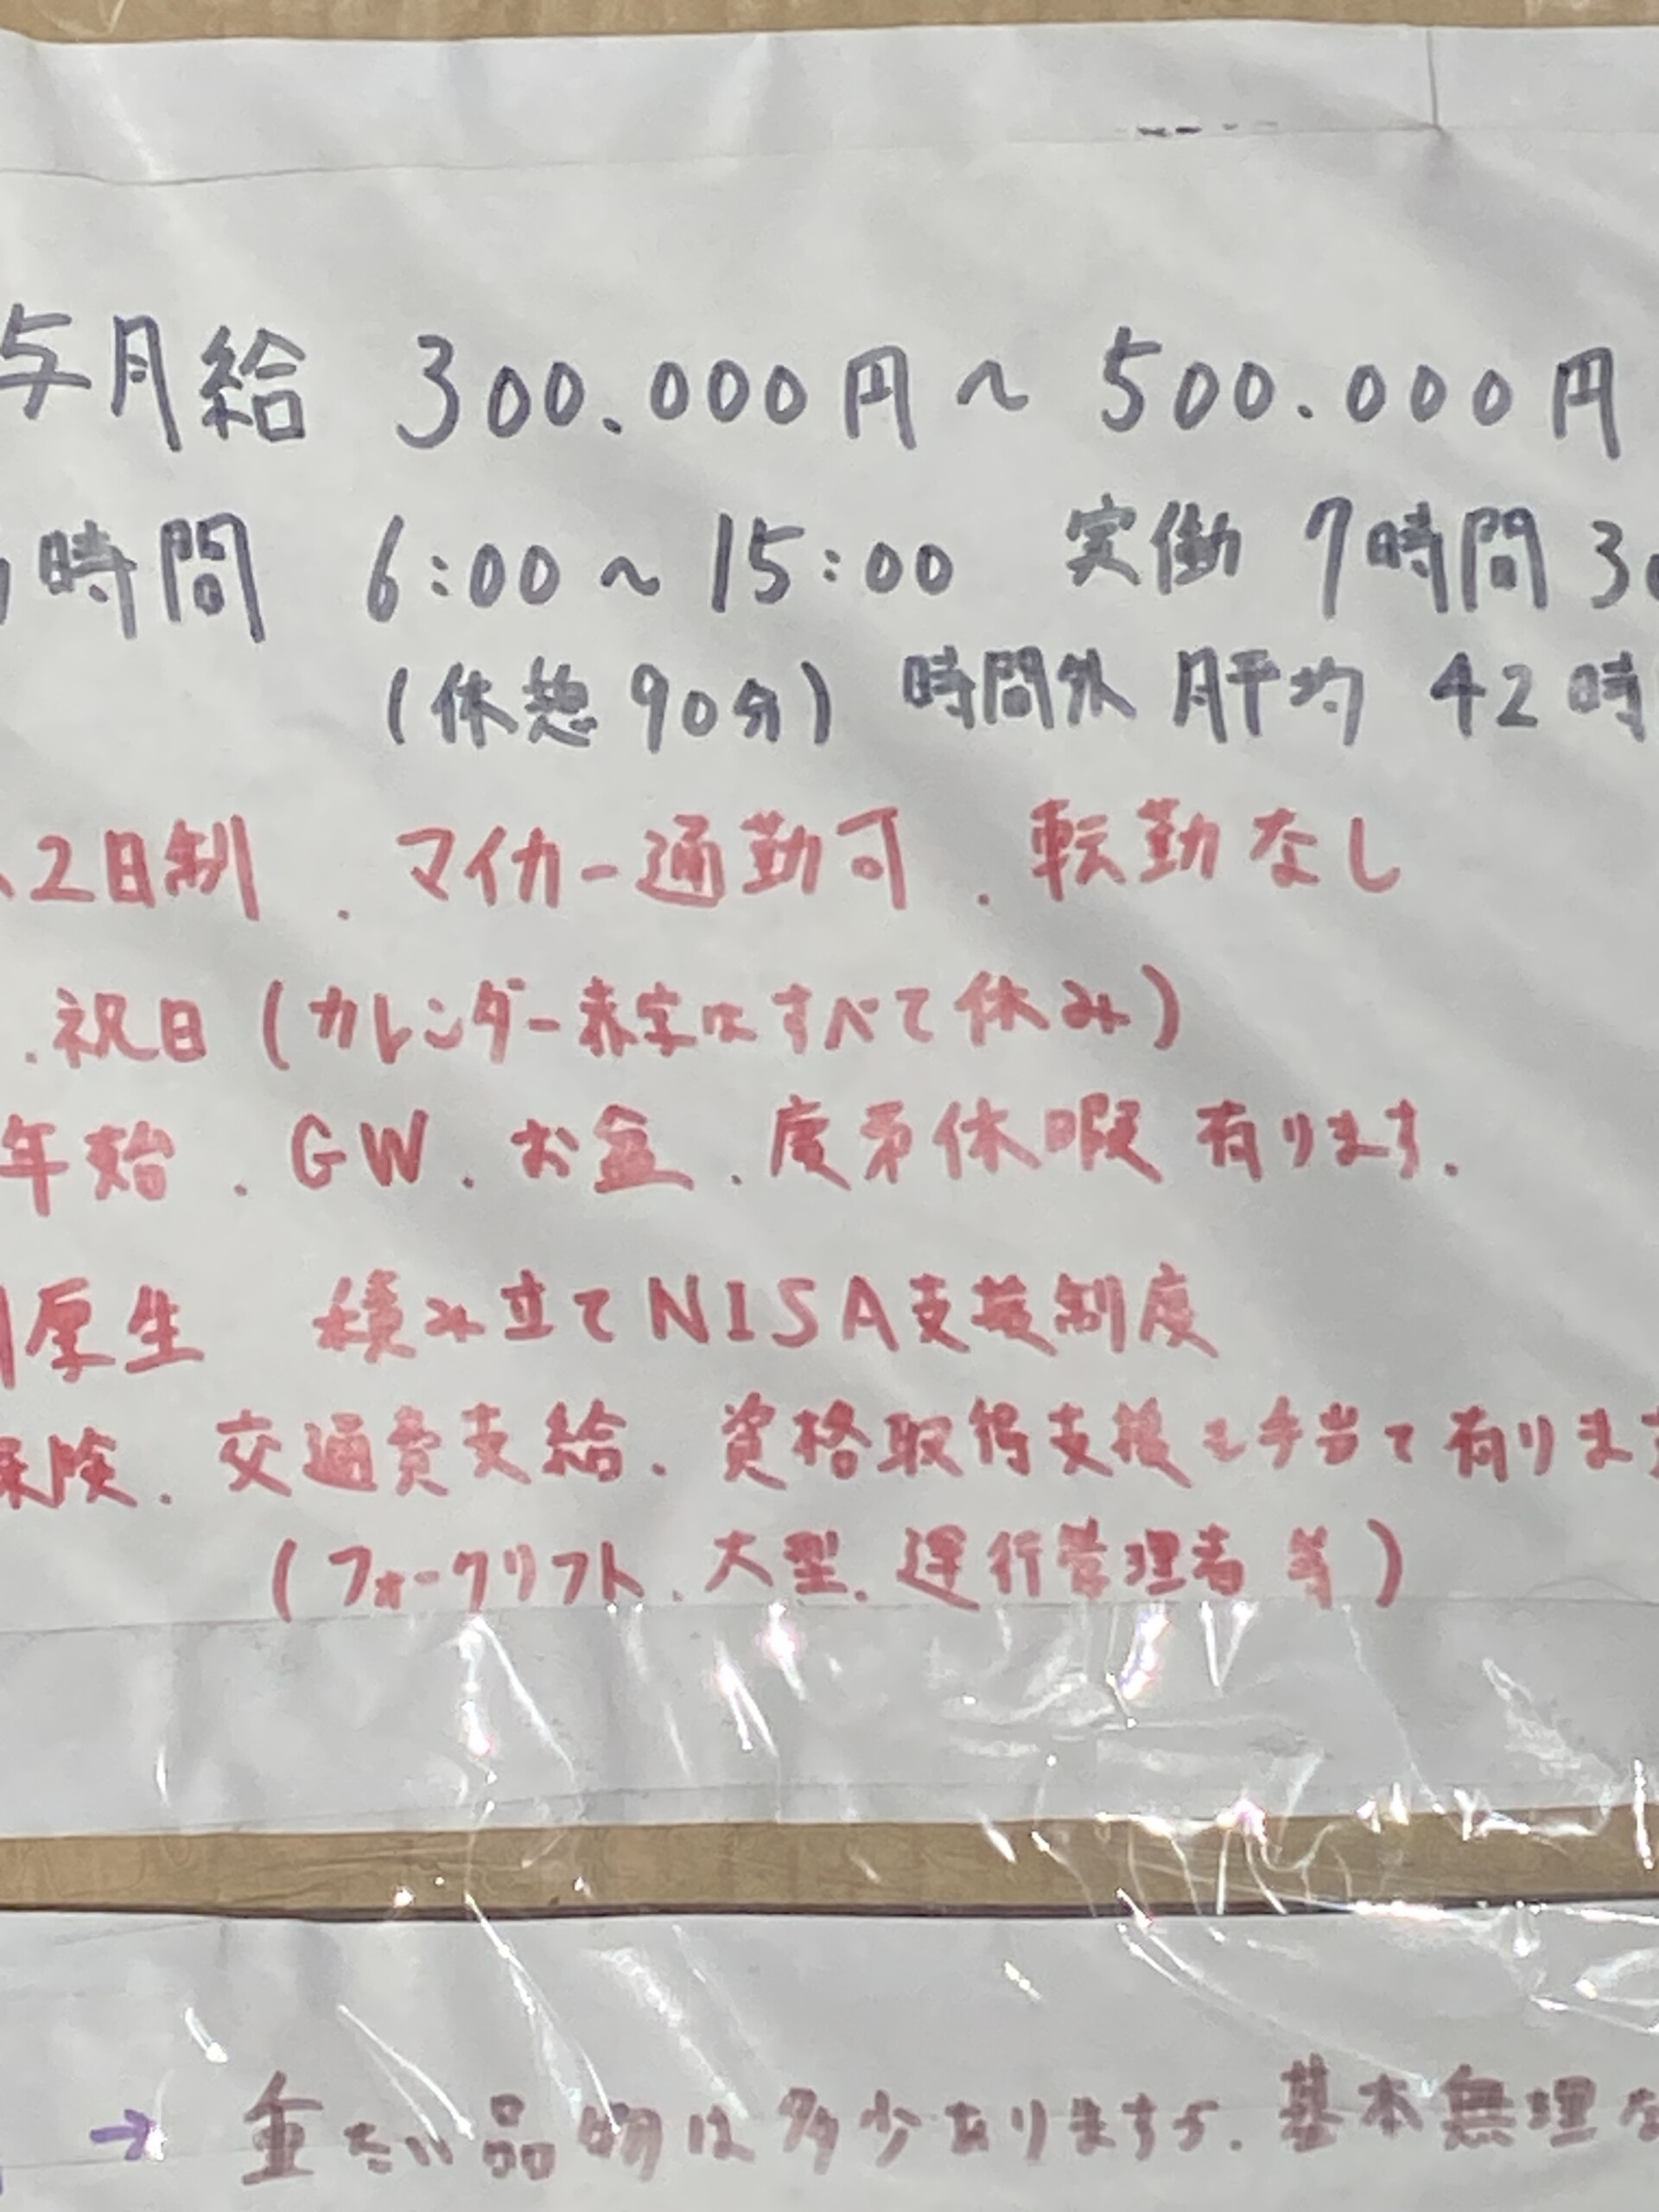 与月給 300.000円～500.000円
時間 6:00～15:00 実働 7時間30
(休憩90分) 時間外 月平均 42時
2日制 . マイカー通勤可 . 転勤なし
. 祝日 (カレンダー赤字はすべて休み)
年始 . GW . お盆 . 慶弔休暇 有ります.
厚生 積み立てNISA支援制度
保険. 交通費支給. 資格取得支援も手当て有ります
(フォークリフト. 大型. 運行管理者 等)
→ 重たい品物は多少あります. 基本無理な